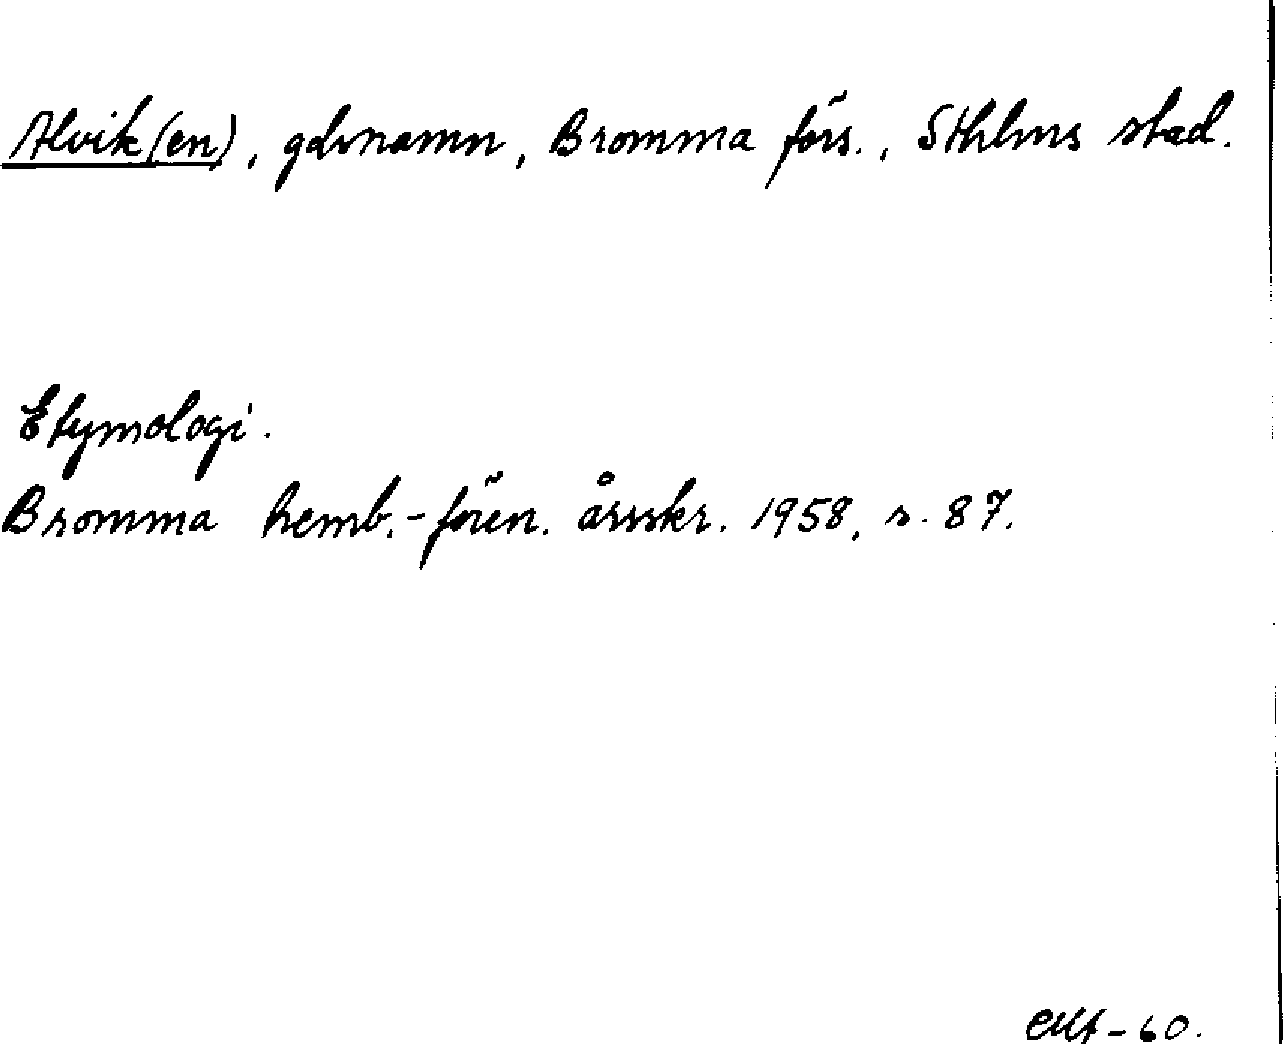 Alvik(en), gdsnamn, Bromma förs., Sthlms stad.
Etymologi.
Bromma hemb.-fören. årsskr. 1958, s. 87.
-60.